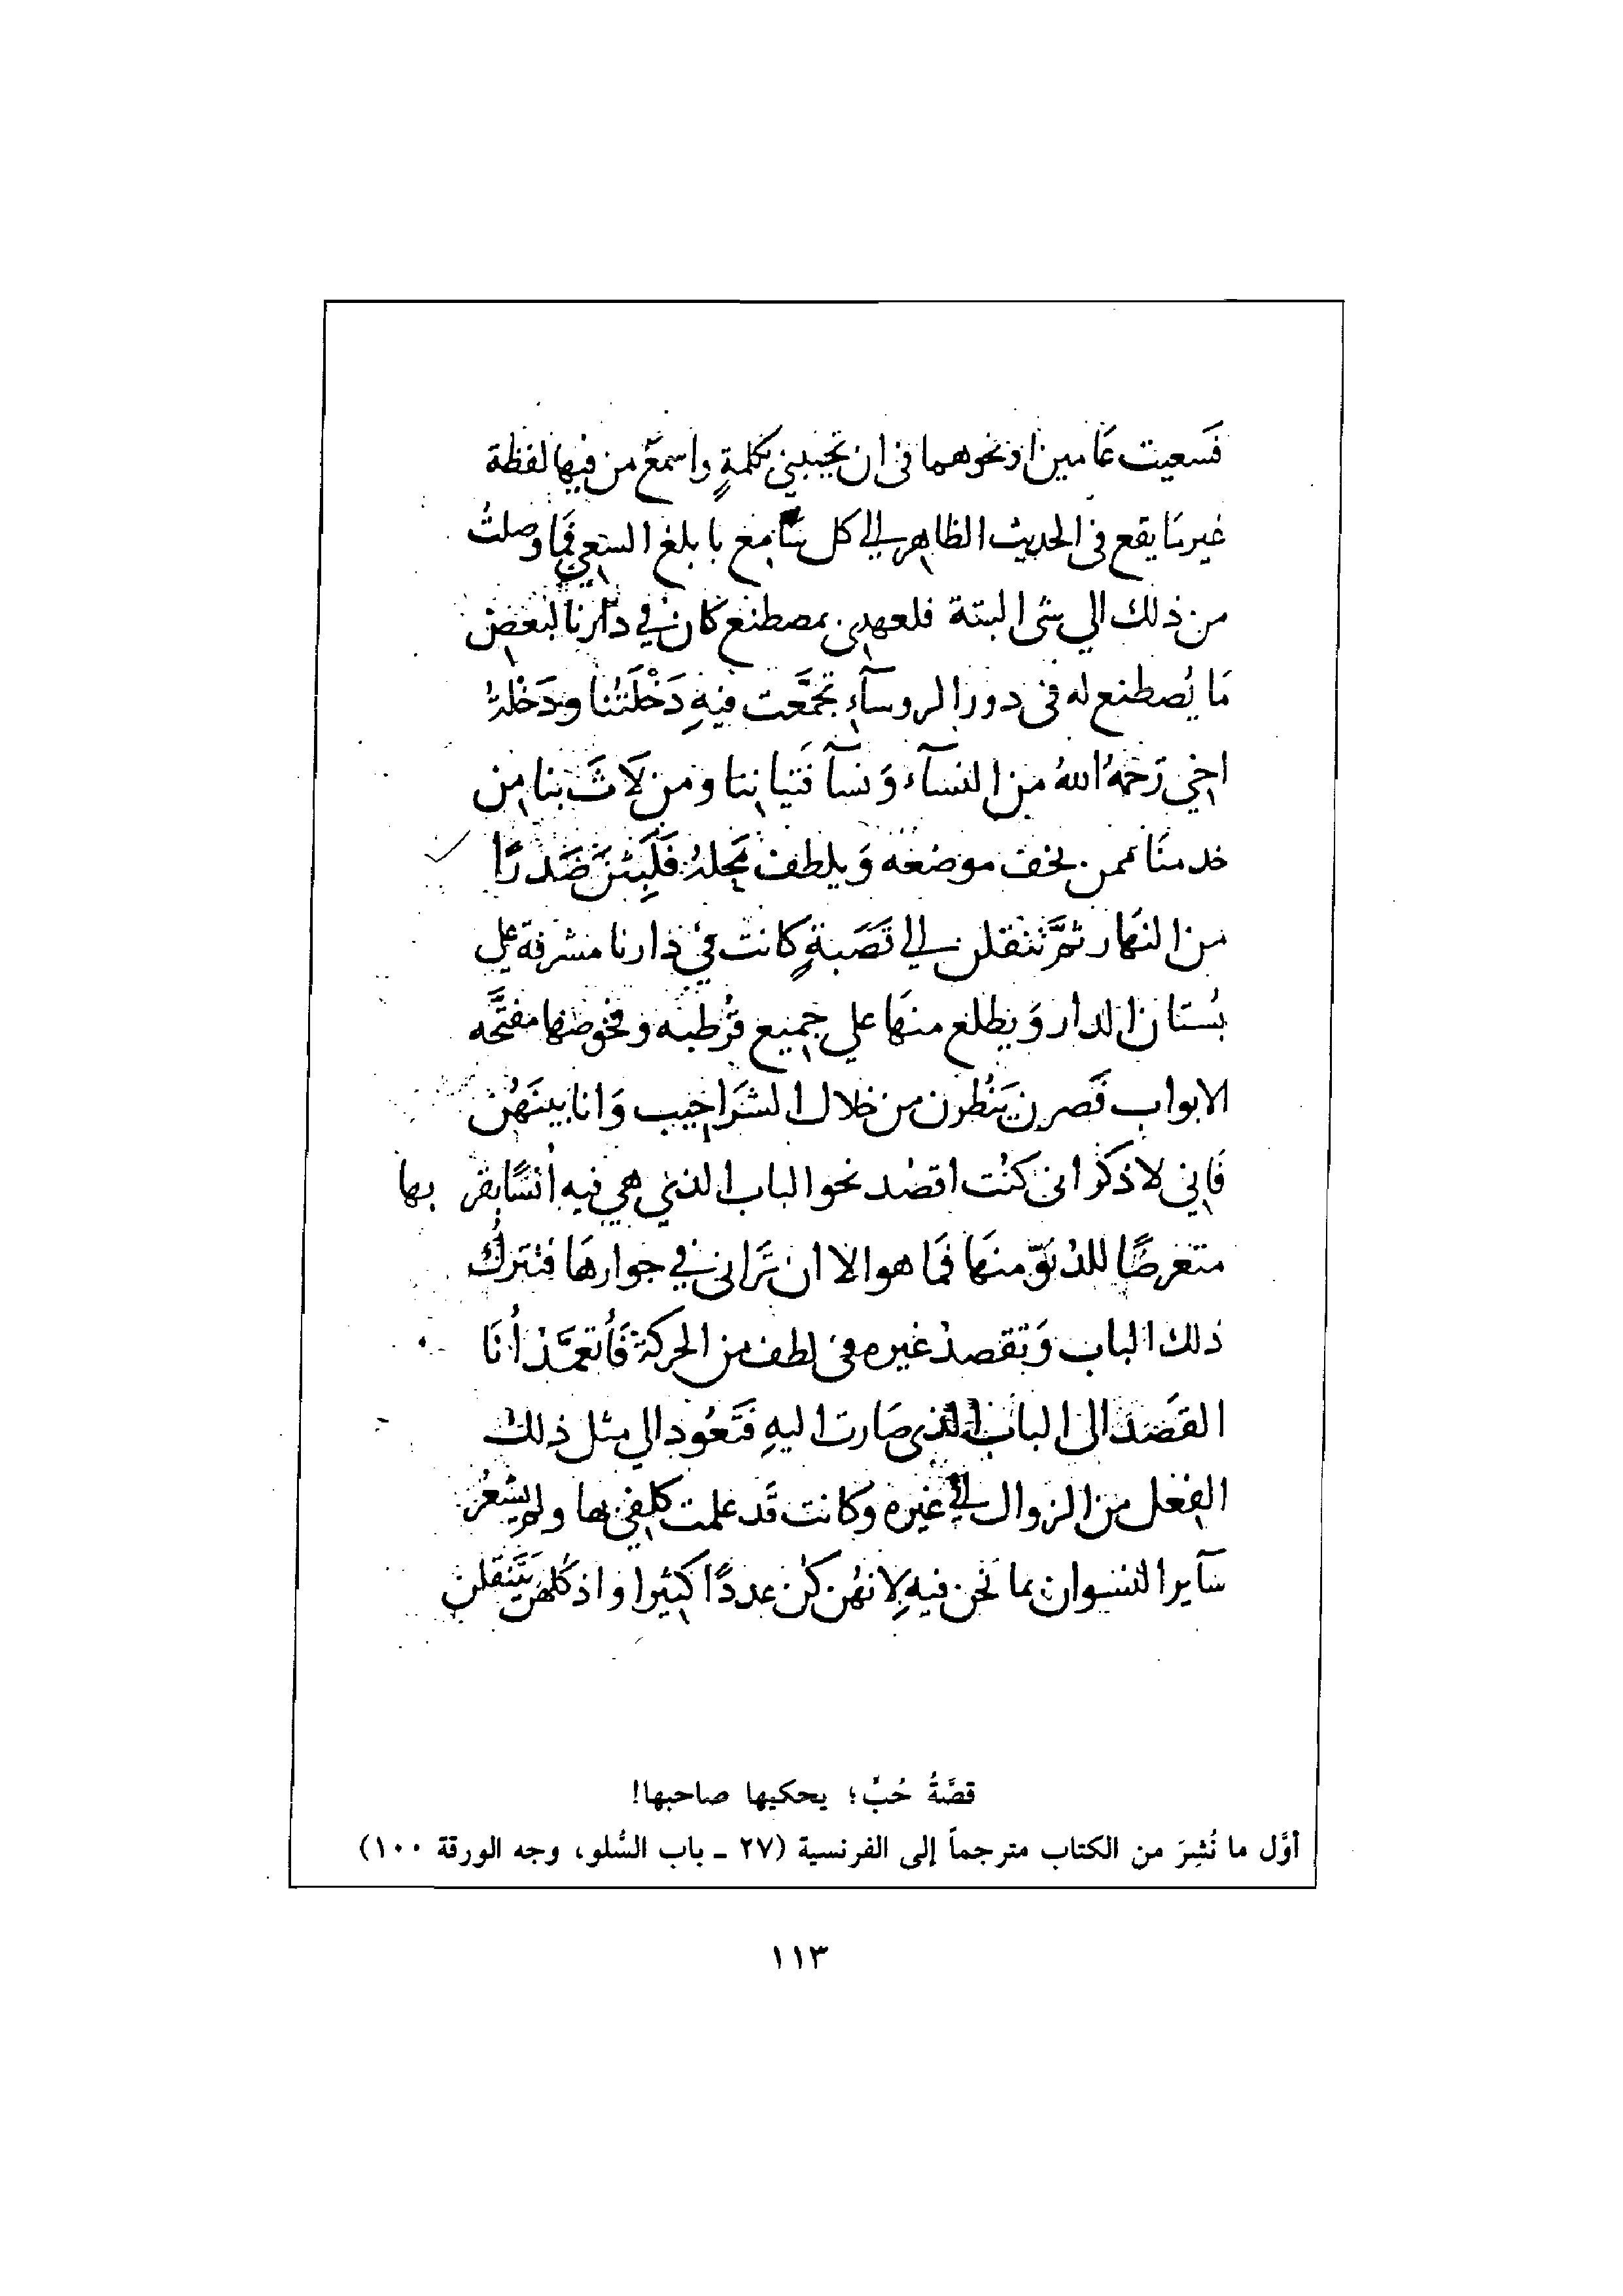 فَسعيت عَامين او نحوهما فى ان تجيبني بكلمةٍ واسمع من فيها لفظة
غير مَا يقع فى الحديث الظاهر الى كل سَامع بابلغ السعي فمَا وصلتُ
من ذلك الي شى البتة فلعهدى بمصطنع كان في دَارنا لبعض
مَا يُصطنع له فى دور الروسآءِ تجمَّعت فيهِ دَخْلَتُنا ودَخْلة
اخي رَحمهُ اللهُ من النسآء وَنسآ فتياننا ومن لَاثَ بنا من
خدمنَا ممن يخف موضعه وَيلطف محله فَلَبِثنَ صَدرًا
من النهَار ثمَّ تنقلن الى قَصَبةٍ كانت في دارنا مشرفة علي
بُستان الدار وَيطلع منهَا علي جميع قرُطبه وفحوصها مفتَّحه
الابواب فَصرن يَنظُرن من خلال الشرَاجيب وَانا بينَهُن
فَاني لاذكر انى كنُت اقصد نحو الباب الذي هي فيه اُنسًا بقربها
متعرضًا للدُنوّ منهَا فمَا هو الا ان تَرَانى في جوارهَا فتتركُ
ذلك الباب وَتقصد غيره في لطف من الحركة فَأتعمَّد أنَا
القصَد الى الباب الذى صَارت اليهِ فتَعُود الي مثل ذلك
الفعل من الزوال الى غيره وكانت قَد علمت كلفي بها ولم يشعُر
سَآير النسوان بما نحن فيهِ لانهُن كن عددًا كثيرا واذ كلهن يتَنقلن
قصَّةُ حُبّ؛ يحكيها صاحبها!
أوَّل ما نُشِرَ من الكتاب مترجماً إلى الفرنسية (٢٧ ـ باب السُّلو، وجه الورقة ١٠٠)
١١٣